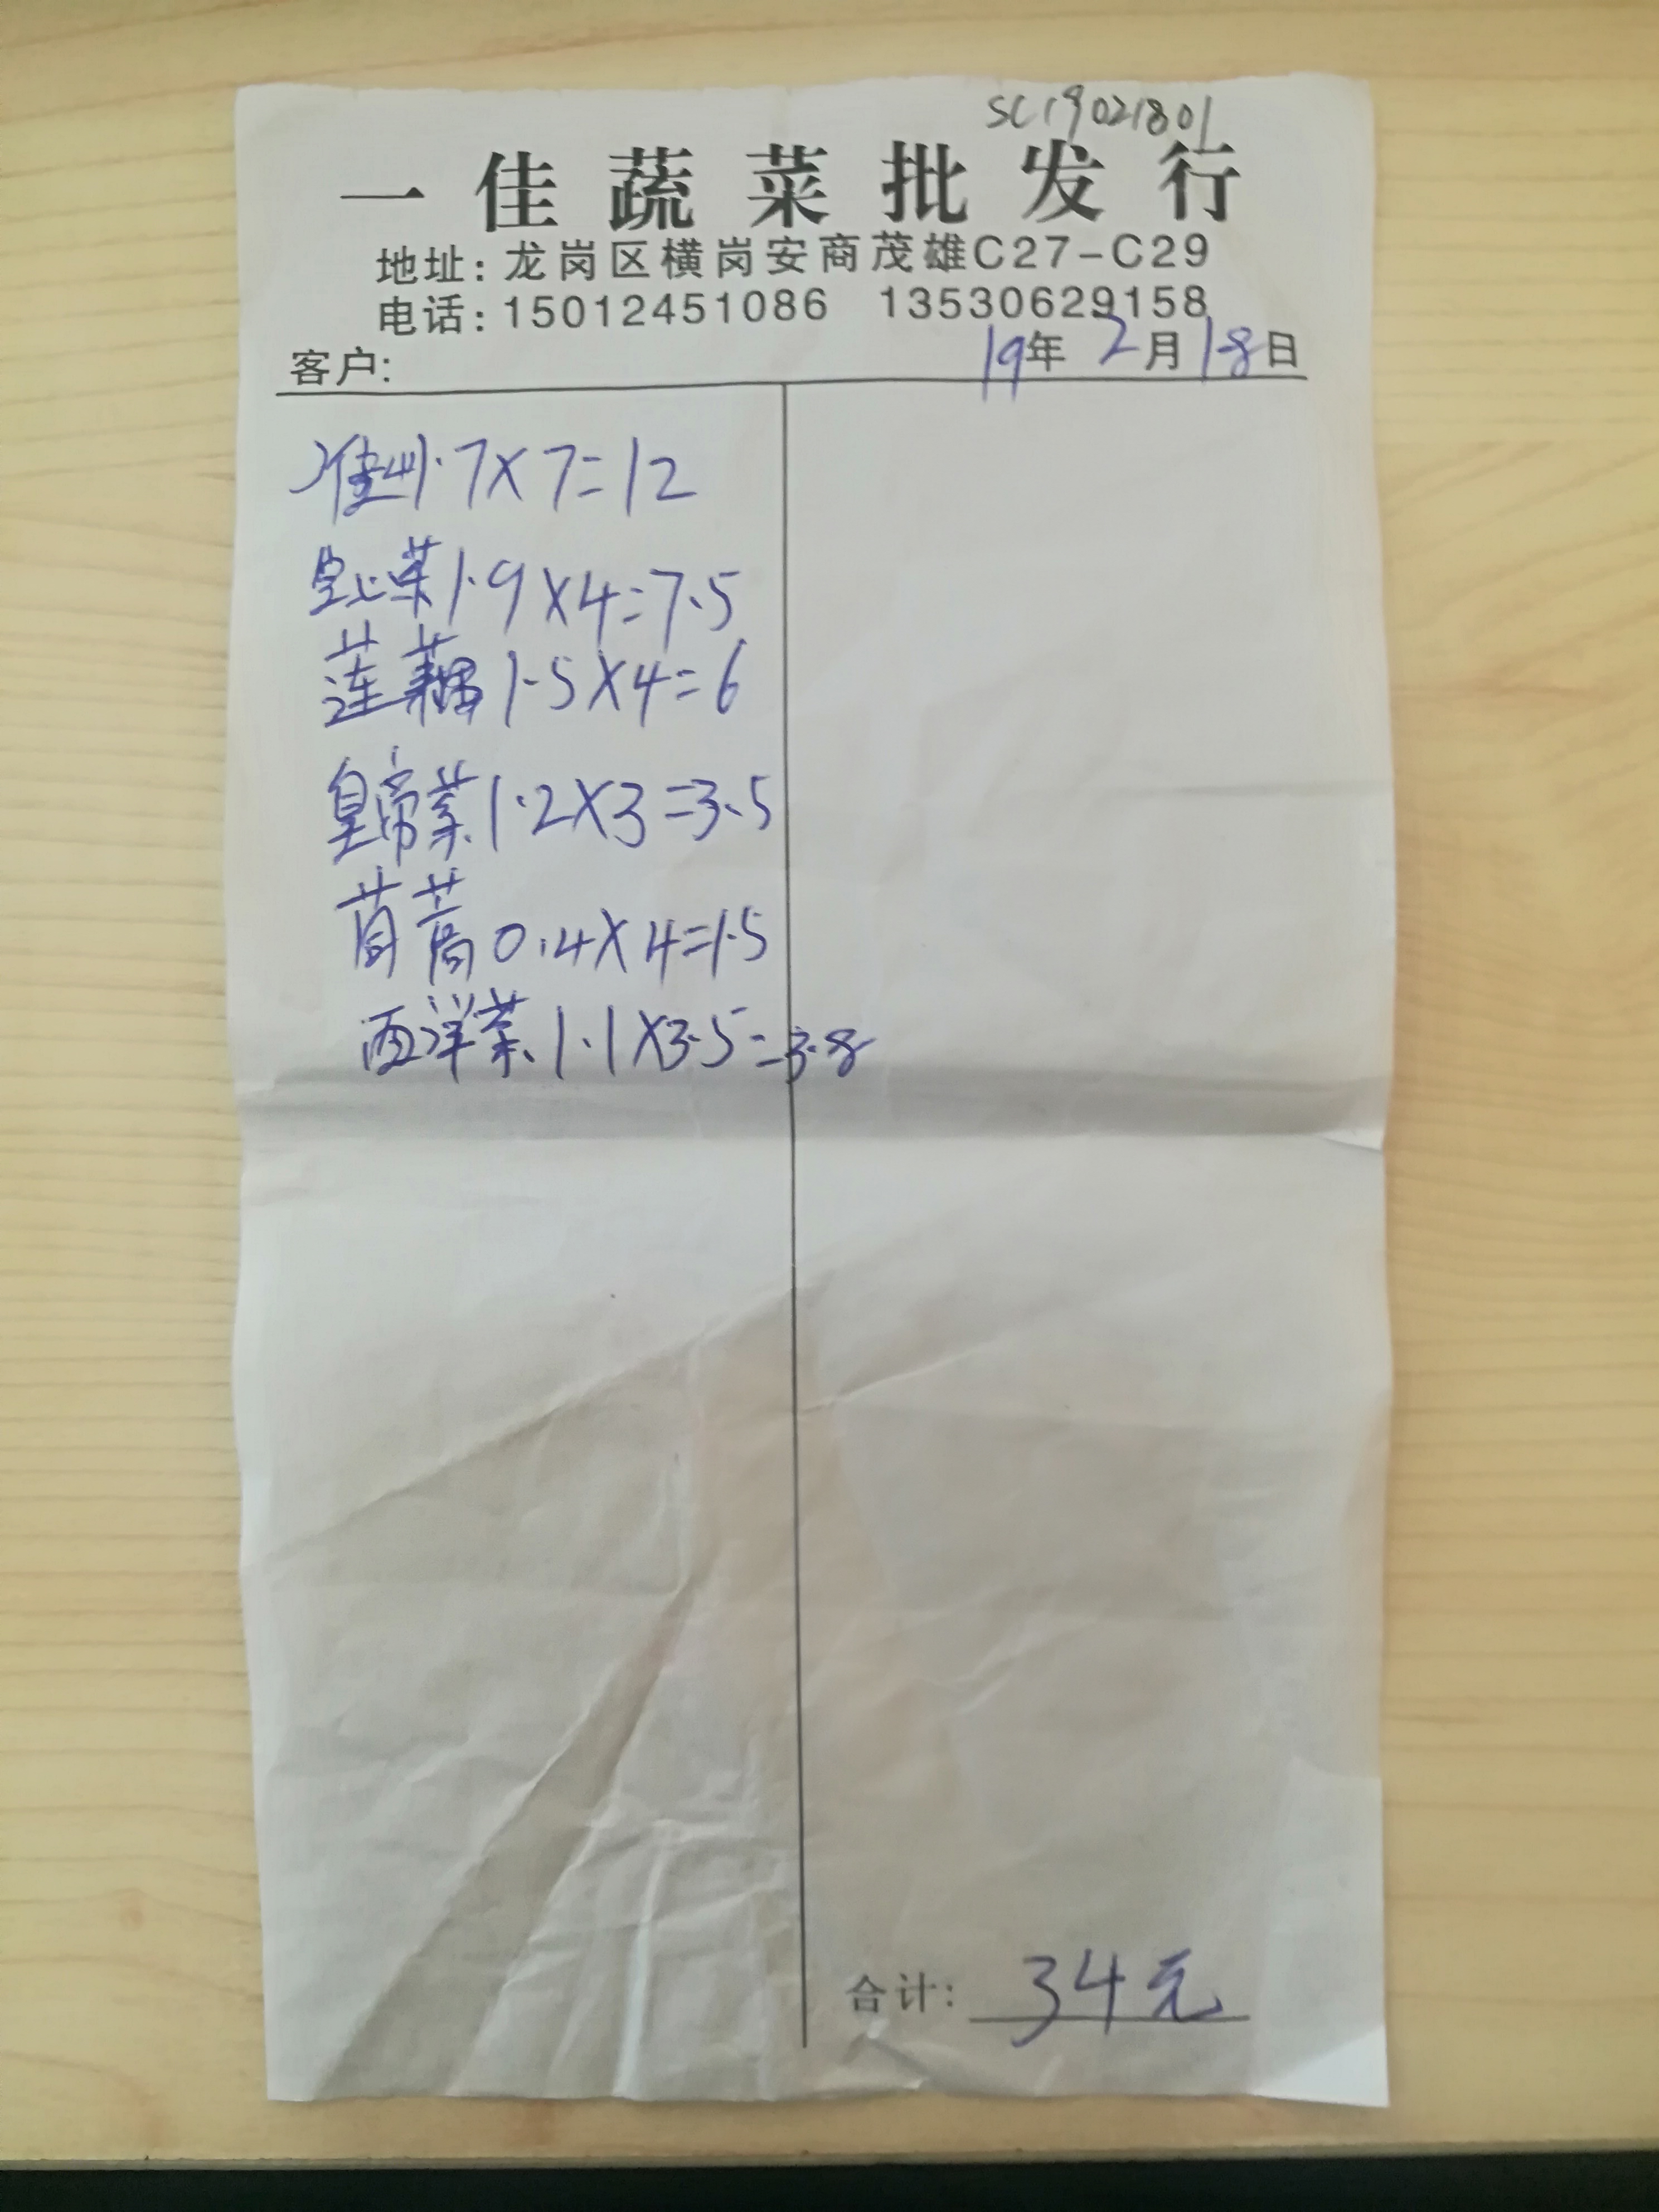 SC19021801
一佳蔬菜批发行
地址:龙岗区横岗安商茂雄C27-C29
电话:15012451086 13530629158
客户: 19年2月18日
淮山1.7×7=12
菜1.9×4=7.5
莲藕1.5×4=6
皇帝菜1.2×3=3.5
茼蒿0.4×4=1.5
西洋菜1.1×3.5=3.8
合计: 34元